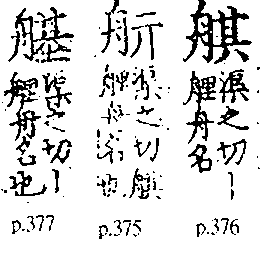 渠之切丨
艃舟名
p.376
渠之切
艃舟名也
p.375
渠之切丨
艃舟名也
p.377